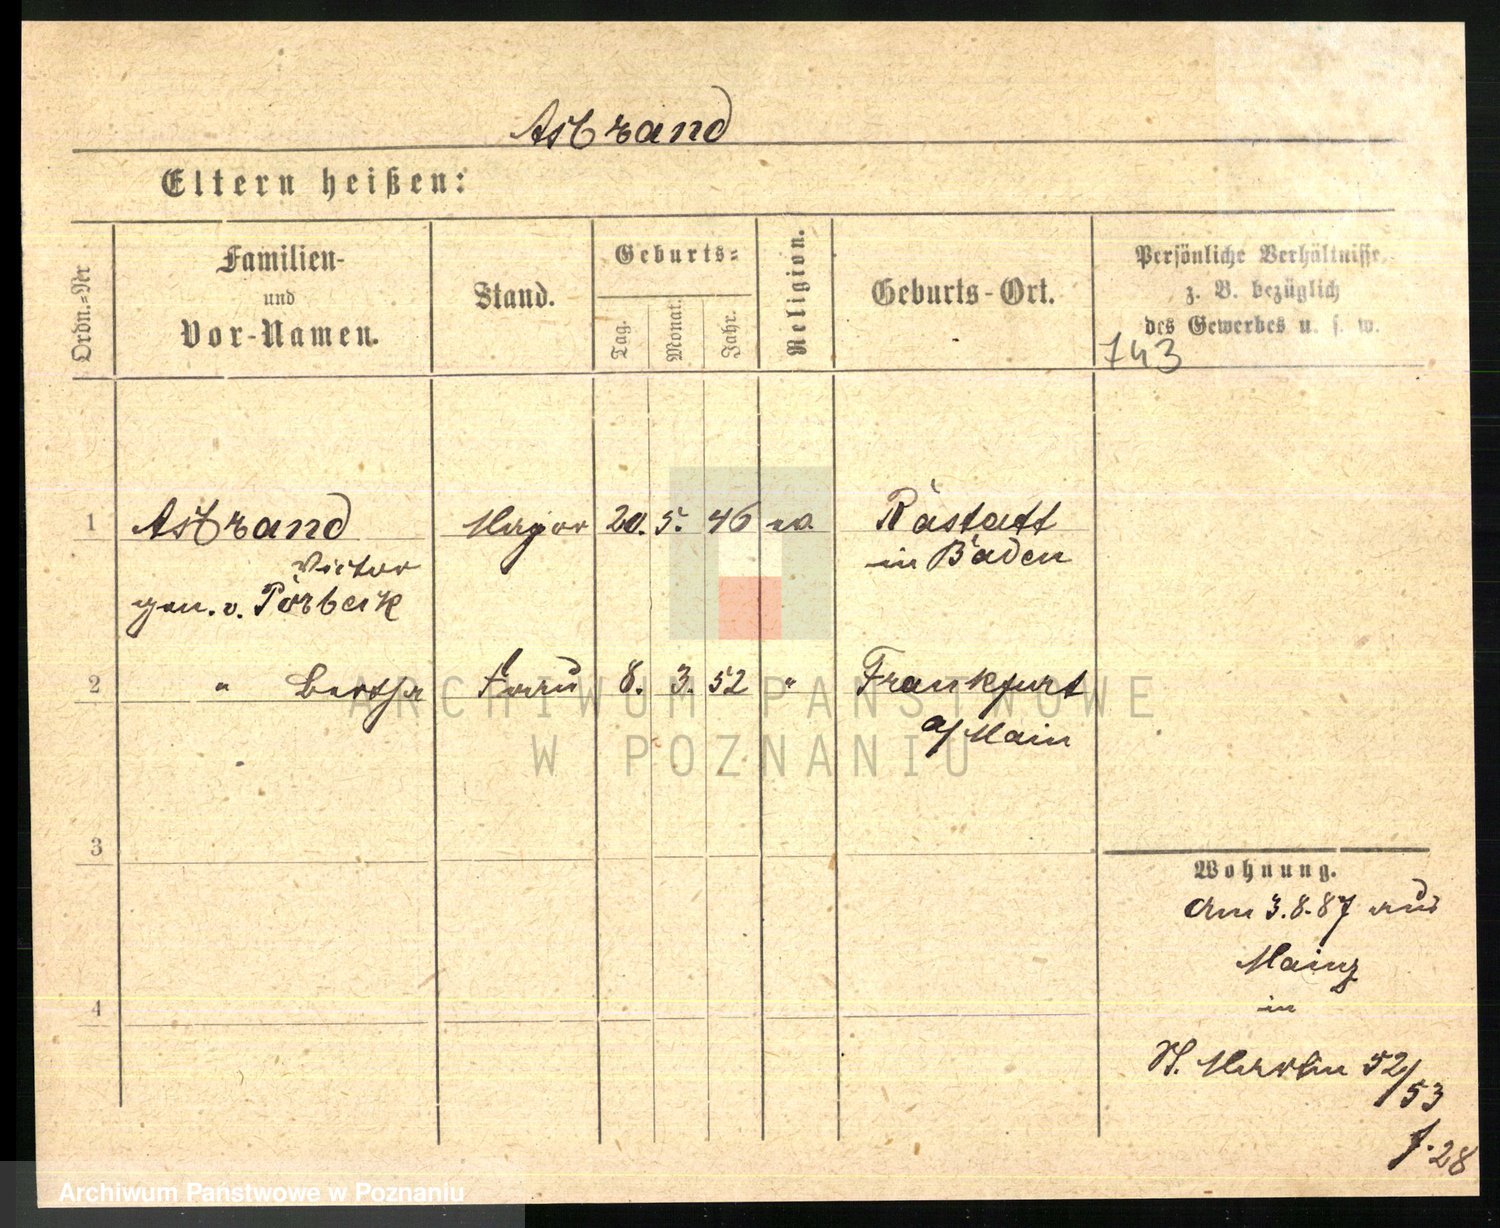 Astrand
Eltern heißen:
Ordn.=Nr
Familien-
und
Vor-Namen.
Stand.
Geburts=
Tag.
Monat.
Jahr.
Religion.
Geburts-Ort.
Persönliche Verhältnisse
z. B. bezüglich
des Gewerbes u. s. w.
143
1 Astrand Major 20. 5. 46 ev. Rastatt
Victor in Baden
gen. v. Porbeck
2 " Bertha Frau 8. 3. 52 " Frankfurt
a/Main
3
4
Wohnung.
Am 3.8.87 aus
Mainz
in
St. Martin 52/53
f. 28
ARCHIWUM PAŃSTWOWE
W POZNANIU
Archiwum Państwowe w Poznaniu